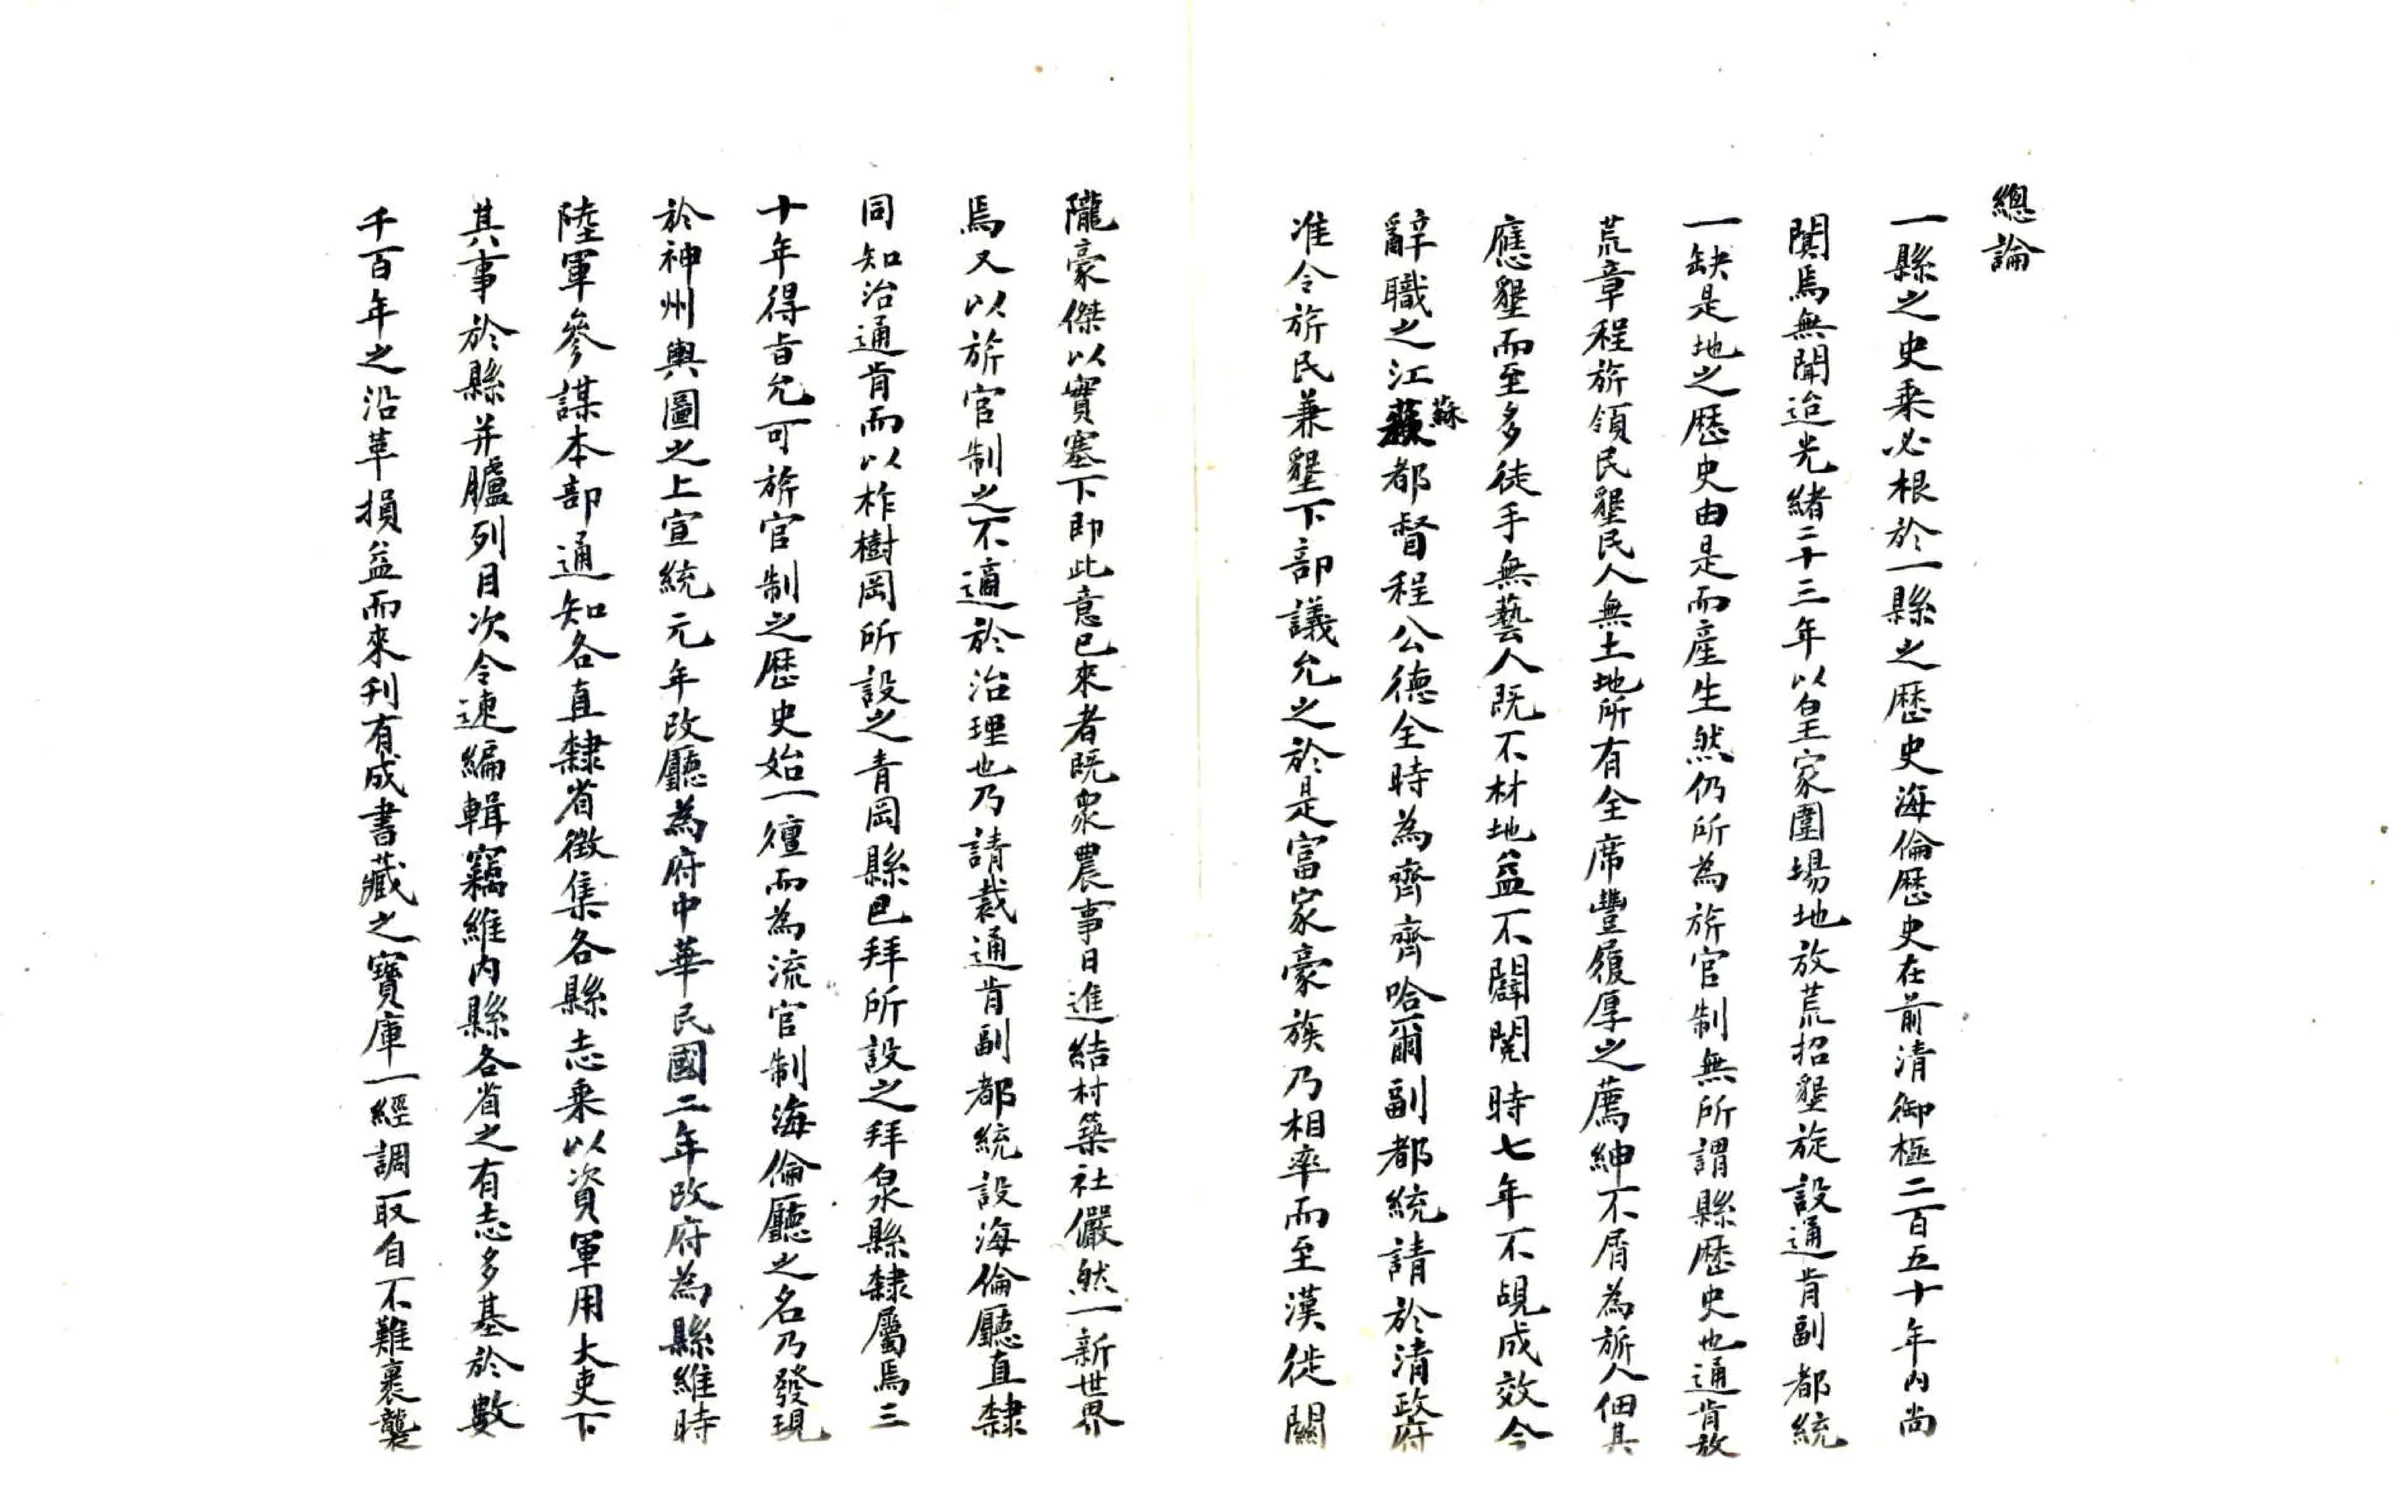 總論
一縣之史乘必根於一縣之歷史海倫歷史在前清御極二百五十年內尚
闃焉無聞迨光緒二十三年以皇家圍場地放荒招墾旋設通肯副都統
一缺是地之歷史由是而產生然仍所為旂官制無所謂縣歷史也通肯放
荒章程旂領民墾民人無土地所有全席豐履厚之薦紳不屑為旂人佃其
應墾而至多徒手無藝人既不材地益不闢閱時七年不覩成效今
辭職之江蘇都督程公德全時為齊齊哈爾副都統請於清政府
准令旂民兼墾下部議允之於是富家豪族乃相率而至漢徙關
隴豪傑以實塞下即此意已來者既眾農事日進結村築社儼然一新世界
焉又以旂官制之不適於治理也乃請裁通肯副都統設海倫廳直隸
同知治通肯而以柞樹岡所設之青岡縣巴拜所設之拜泉縣隸屬焉三
十年得旨允可旂官制之歷史始一擅而為流官制海倫廳之名乃發現
於神州輿圖之上宣統元年改廳為府中華民國二年改府為縣維時
陸軍參謀本部通知各直隸省徵集各縣志乘以資軍用大吏下
其事於縣并臚列目次令速編輯竊維內縣各省之有志多基於數
千百年之沿革損益而來刊有成書藏之寶庫一經調取自不難裹襲